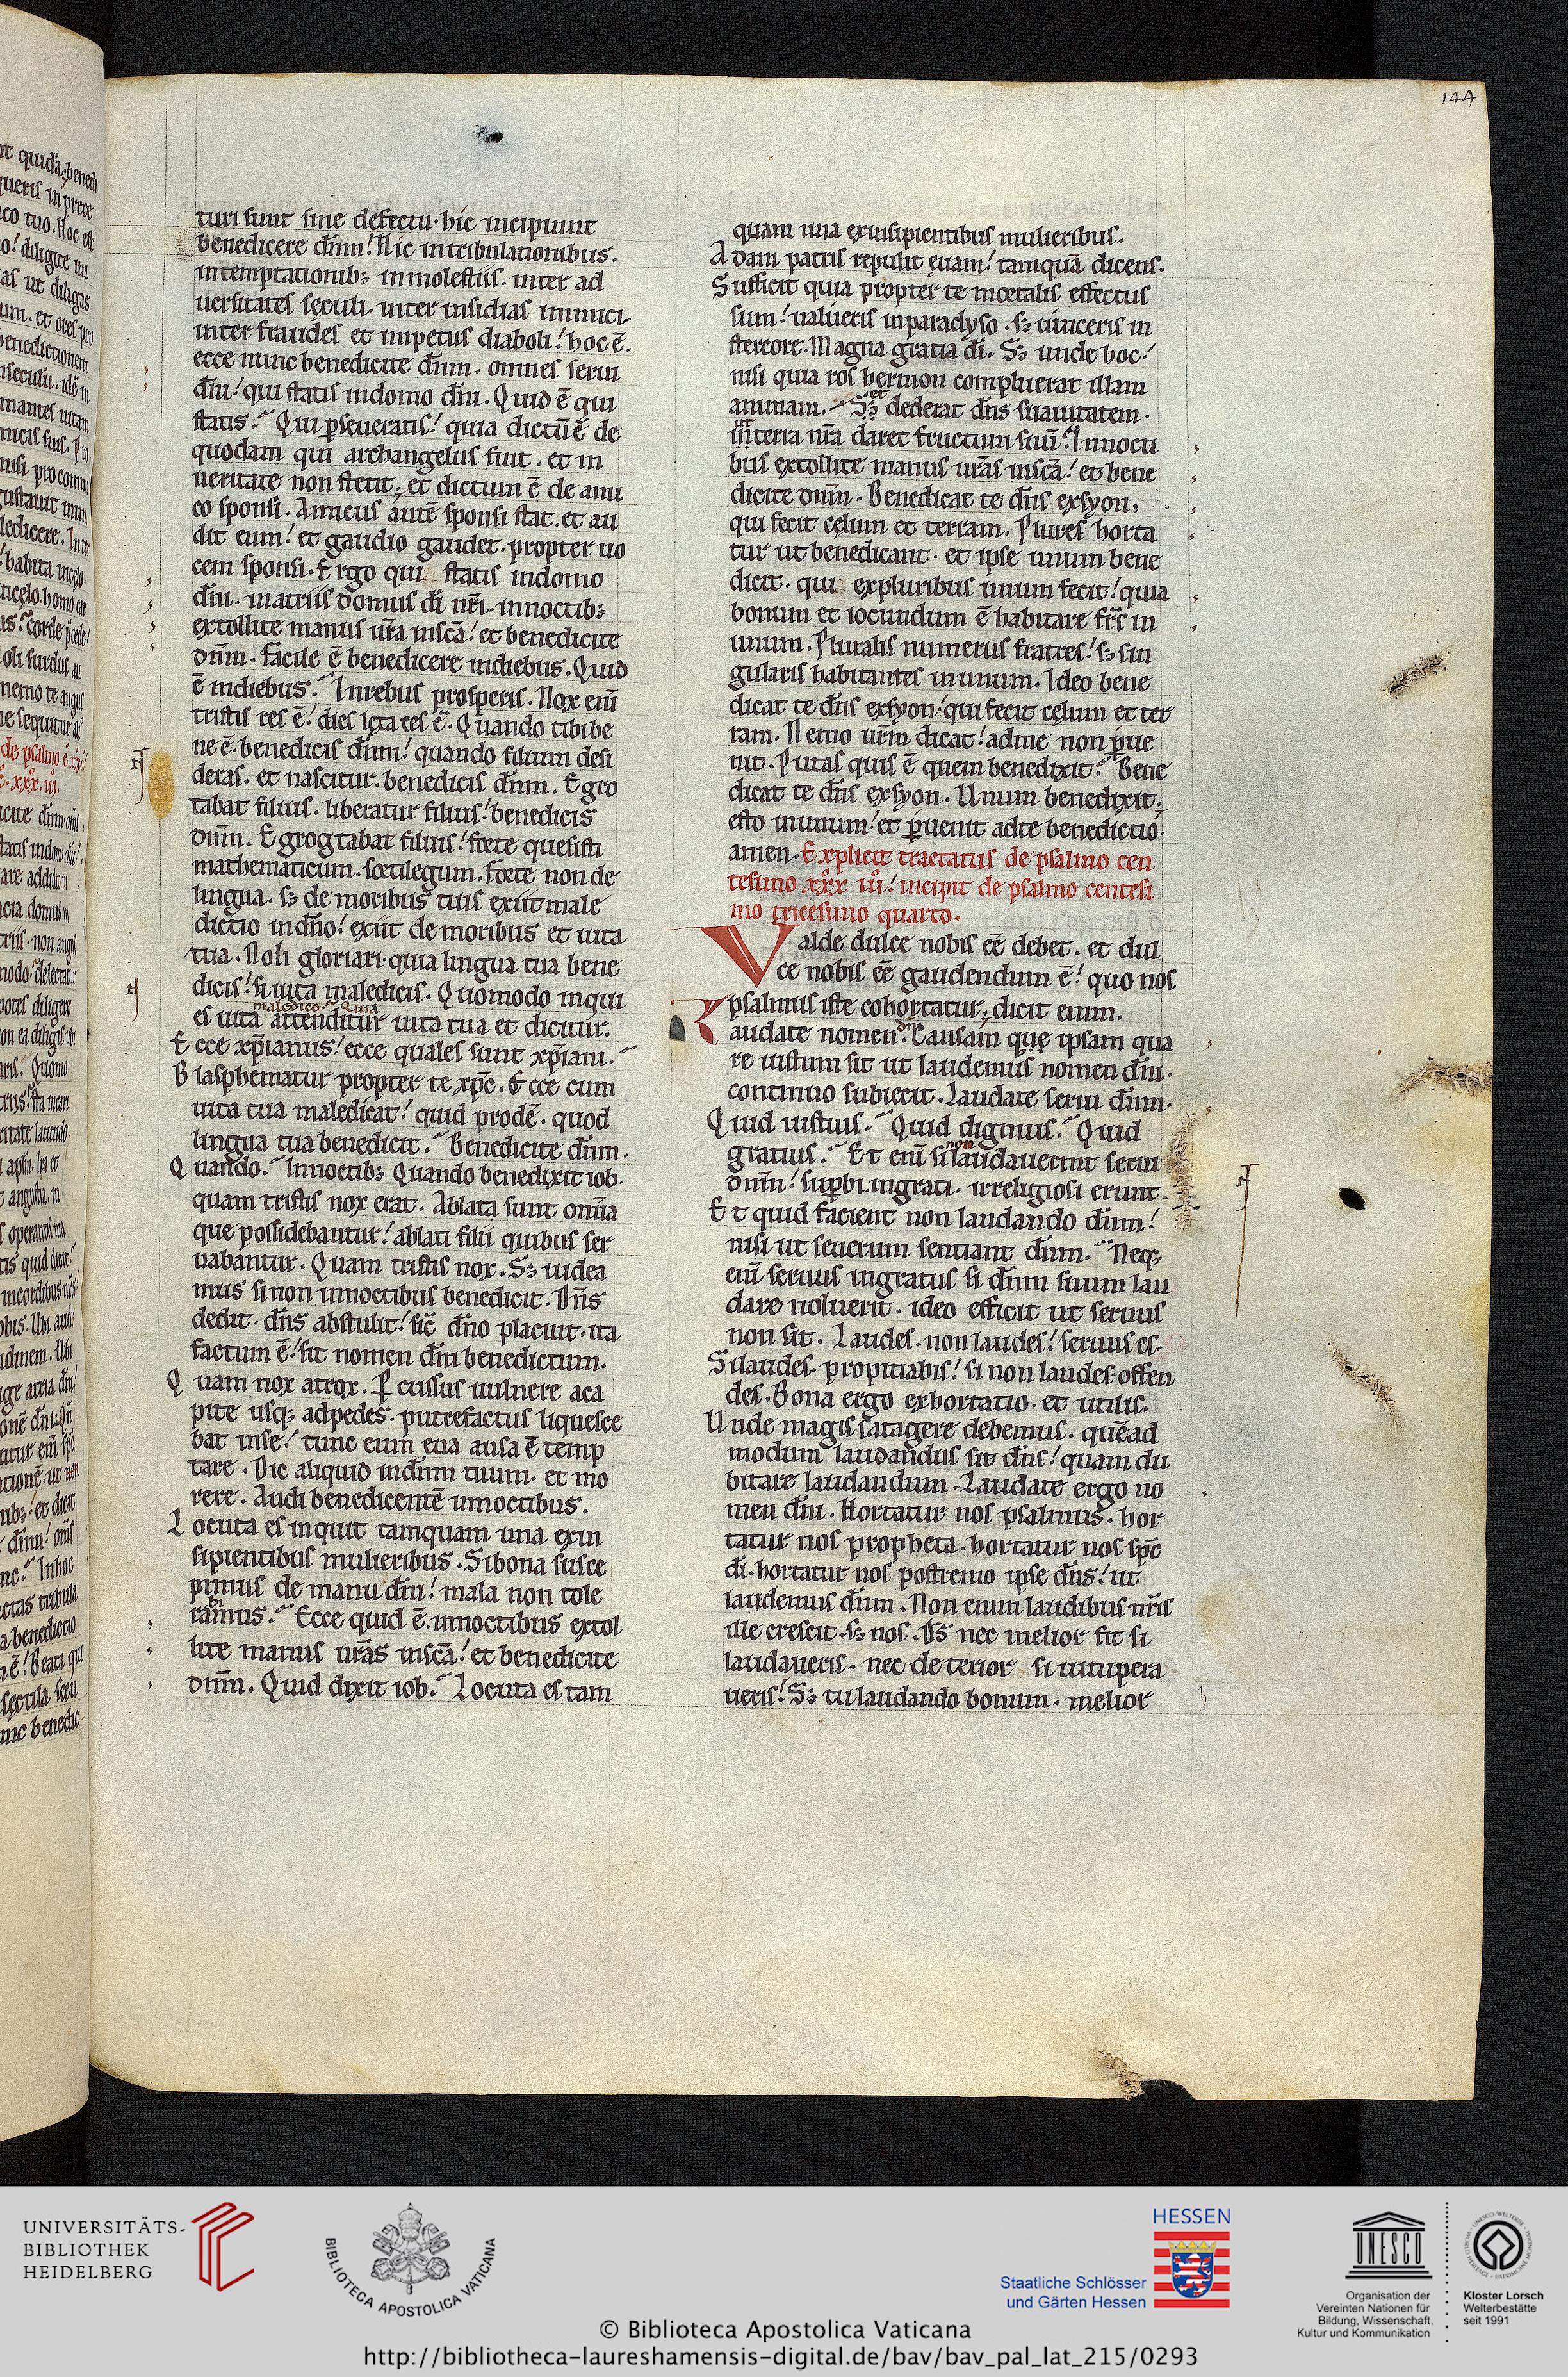 144
turi sunt sine defectu. hic incipiunt
benedicere dn̄m! Hic intribulationibus.
intemptationib; inmolestiis. inter ad
uersitates sęculi. inter insidias inimici.
inter fraudes et impetus diaboli! hoc ē.
ecce nunc benedicite dn̄m. omnes serui
dn̄i! qui statis indomo dn̄i. Quid ē qui
statis? Qui ꝑseueratis! quia dictū ē de
quodam qui archangelus fuit. et in
ueritate non stetit; et dictum ē de ami
co sponsi. Amicus autē sponsi stat. et au
dit eum! et gaudio gaudet. propter uo
cem sponsi. Ergo qui statis indomo
dn̄i. inatriis domus dī nr̄i. innoctib;
extollite manus ur̄a insc̄a! et benedicite
dn̄m. facile ē benedicere indiebus. Quid
ē indiebus? Inrebus prosperis. Nox enī
tristis res ē! dies lęta res ē. Quando tibi be
ne ē. benedicis dn̄m! quando filium desi
deras. et nascitur. benedicis dn̄m. Egro
tabat filius. liberatur filius! benedicis
dn̄m. Egrogtabat filius! forte quesisti
mathematicum. sortilegum. forte non de
lingua. s; de moribus tuis exiit male
dictio indn̄o! exiit de moribus et uita
tua. Noli gloriari. quia lingua tua bene
dicis! si uita maledicis. Quomodo inqui
maledico? Quia
es uita attenditur uita tua et dicitur.
Ecce xp̄ianus! ecce quales sunt xp̄iani?
Blasphematur propter te xp̄c. Ecce cum
uita tua maledicat! quid prodē. quod
lingua tua benedicit? Benedicite dn̄m.
Quando? Innoctib; Quando benedixit iob.
quam tristis nox erat. Ablata sunt omīa
que possidebantur! ablati filii quibus ser
uabantur. Quam tristis nox. S; uidea
mus si non innoctibus benedicit. Dn̄s
dedit. dn̄s abstulit! sic̄ dn̄o placuit. ita
factum ē! sit nomen dn̄i benedictum.
Quam nox atrox. Ꝑcussus uulnere aca
pite usq; adpedes. putrefactus liquesce
bat inse! tunc eum eua ausa ē temp
tare. Dic aliquid indn̄m tuum. et mo
rere. Audi benedicentē innoctibus.
Locuta es inquit tamquam una exin
sipientibus mulieribus. Si bona susce
pimus de manu dn̄i! mala non tole
bi
ramus? Ecce quid ē. innoctibus extol
lite manus ur̄as insc̄a! et benedicite
dn̄m. Quid dixit iob? Locuta es tam
quam una exinsipientibus mulieribus.
Adam patris repulit ęuam! tamquā dicens.
Sufficit quia propter te mortalis effectus
sum! ualueris inparadyso. s; uinceris in
stercore. Magna gratia dī. S; unde hoc!
nisi quia ros hermon compluerat illam
animam. S; et dederat dn̄s suauitatem.
terra nr̄a daret fructum suū? Innocti
bus extollite manus ur̄as insc̄a! et bene
dicite dn̄m. Benedicat te dn̄s exsyon,
qui fecit cęlum et terram. Plures horta
tur ut benedicant. et ipse unum bene
dicit. qui expluribus unum fecit! quia
bonum et iocundum ē habitare fr̄s in
unum. Pluralis numerus fratres! s; sin
gularis habitantes inunum. Ideo bene
dicat te dn̄s exsyon! qui fecit cęlum et ter
ram. Nemo ur̄m dicat! adme non ꝑue
nit. Putas quis ē quem benedixit? Bene
dicat te dn̄s exsyon. Unum benedixit;
esto inunum! et ꝑuenit adte benedictio.
amen. Explicit tractatus de psalmo cen
tesimo xxx iii! incipit de psalmo centesi
mo tricesimo quarto.
Valde dulce nobis eē debet. et dul
ce nobis eē gaudendum ē! quo nos
psalmus iste cohortatur; dicit enim.
audate nomen dn̄i. Causam quę ipsam qua
re iustum sit ut laudemus nomen dn̄i.
continuo subiecit. Laudate serui dn̄m.
Quid iustius? Quid dignius? Quid
non
gratius? Et enī si laudauerint serui
dn̄m! suꝑbi. ingrati. irreligiosi erunt.
Et quid facient non laudando dn̄m!
nisi ut seuerum sentiant dn̄m? Neq;
enī seruus ingratus si dn̄m suum lau
dare noluerit. ideo efficit ut seruus
non sit. Laudes. non laudes! seruus es.
Si laudes. propitiabis! si non laudes. offen
des. Bona ergo exhortatio. et utilis.
Unde magis satagere debemus. quēad
modum laudandus sit dn̄s! quam du
bitare laudandum. Laudate ergo no
men dn̄i. Hortatur nos psalmus. hor
tatur nos propheta. hortatur nos sp̄c
dī. hortatur nos postremo ipse dn̄s! ut
laudemus dn̄m. Non enim laudibus nr̄is
ille crescit. s; nos. Ds̄ nec melior fit si
laudaueris. nec deterior si uitupera
ueris! S; tu laudando bonum. melior
UNIVERSITÄTS-
BIBLIOTHEK
HEIDELBERG
BIBLIOTECA APOSTOLICA VATICANA
HESSEN
Staatliche Schlösser
und Gärten Hessen
UNESCO
Organisation der
Vereinten Nationen für
Bildung, Wissenschaft,
Kultur und Kommunikation
Kloster Lorsch
Welterbestätte
seit 1991
© Biblioteca Apostolica Vaticana
http://bibliotheca-laureshamensis-digital.de/bav/bav_pal_lat_215/0293